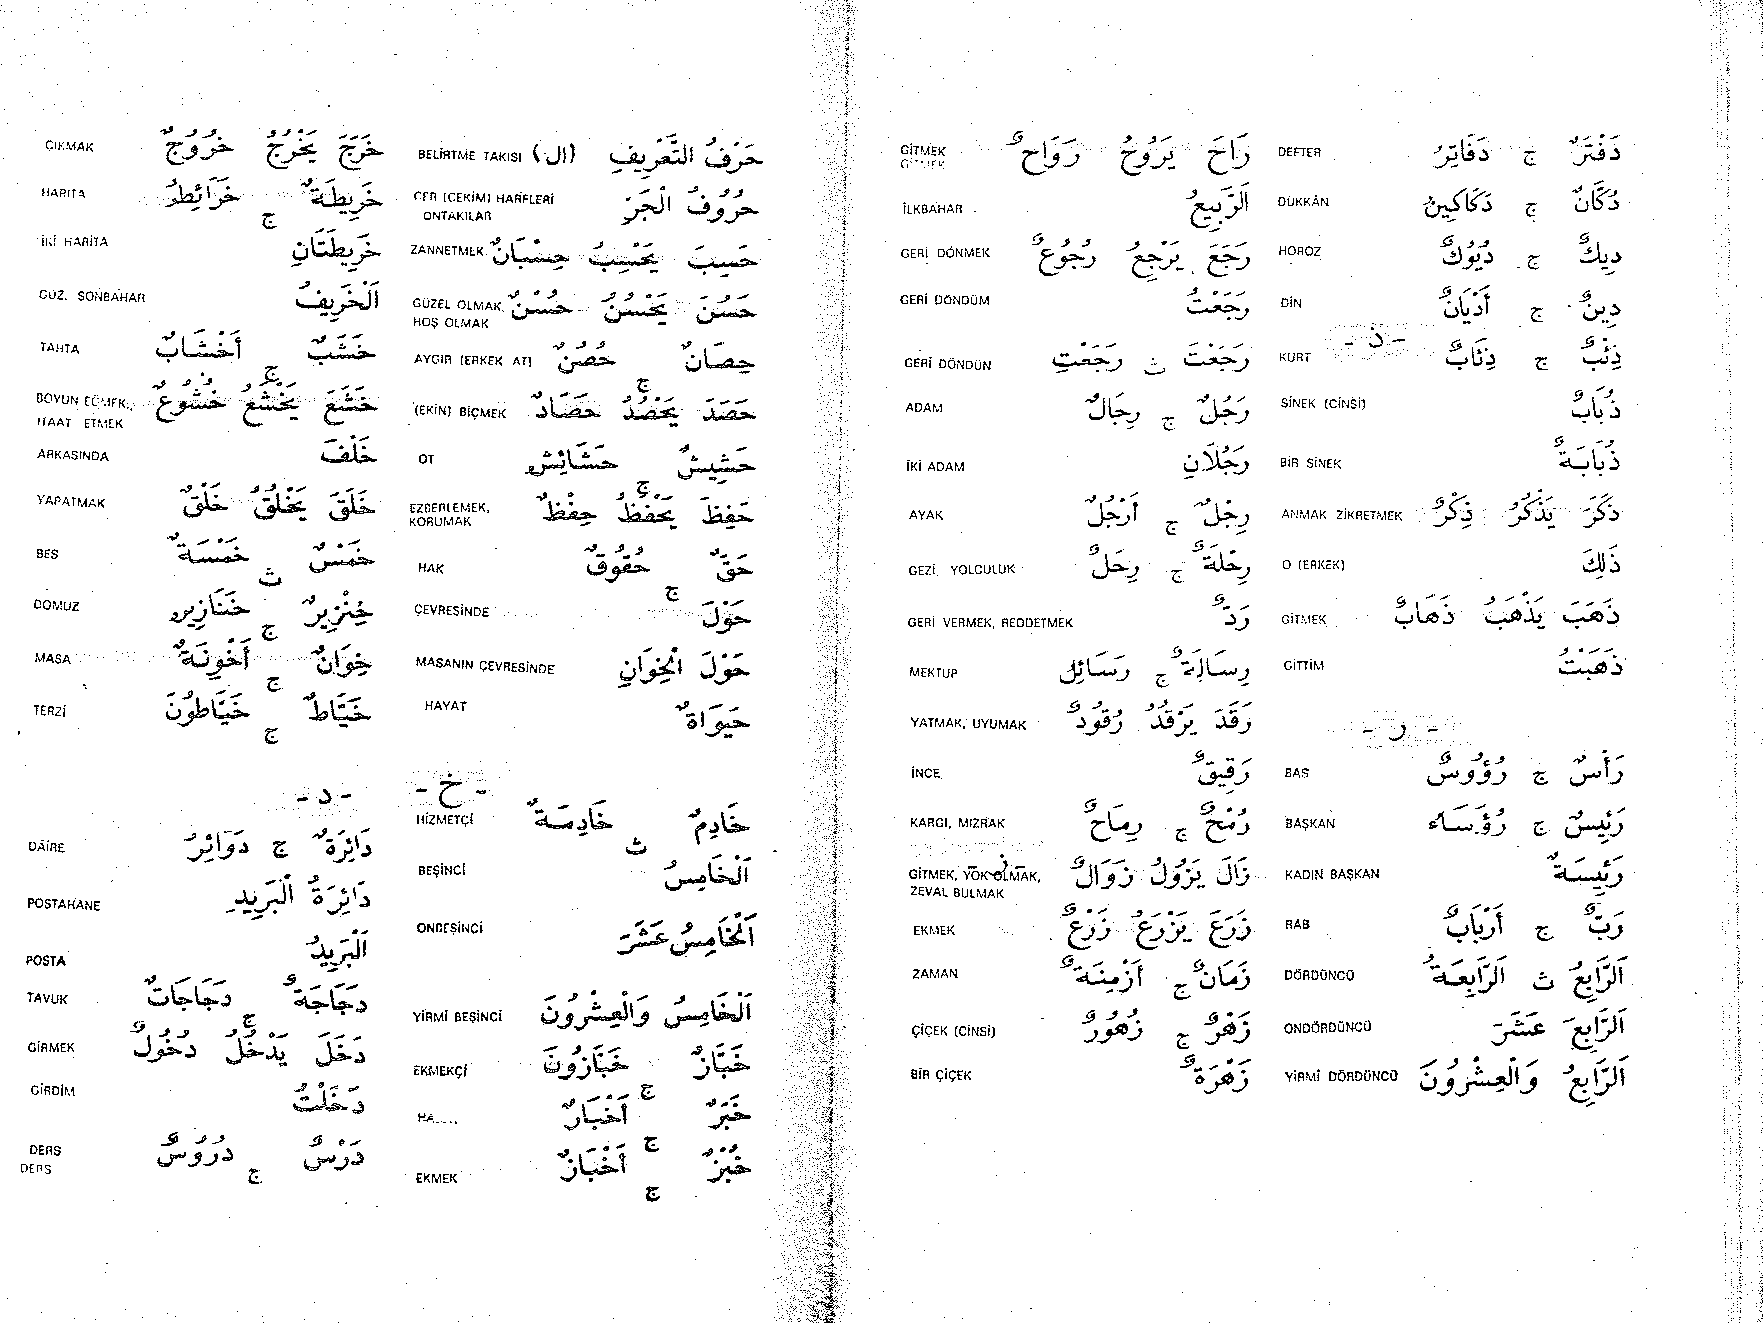 حَرْفُ التَّعْرِيفِ (ال) BELİRTME TAKISI
حُرُوفُ الْجَرِّ CER (ÇEKİM) HARFLERİ
ÖNTAKILAR
حَسِبَ يَحْسِبُ حِسْبَانٌ ZANNETMEK
حَسُنَ يَحْسُنُ حُسْنٌ GÜZEL OLMAK
HOŞ OLMAK
حِصَانٌ ج حُصُنٌ AYGIR (ERKEK AT)
حَصَدَ يَحْصُدُ حَصَادٌ (EKİN) BİÇMEK
حَشِيشٌ ج حَشَائِشُ OT
حَفِظَ يَحْفَظُ حِفْظٌ EZBERLEMEK,
KORUMAK
حَقٌّ ج حُقُوقٌ HAK
حَوْلَ ÇEVRESİNDE
حَوْلَ الْخِوَانِ MASANIN ÇEVRESİNDE
حَيَوَاةٌ HAYAT
- خ -
خَادِمٌ ث خَادِمَةٌ HİZMETÇİ
اَلْخَامِسُ BEŞİNCİ
اَلْخَامِسُ عَشَرَ ONBEŞİNCİ
اَلْخَامِسُ وَالْعِشْرُونَ YİRMİ BEŞİNCİ
خَبَّازٌ ج خَبَّازُونَ EKMEKÇİ
خَبَرٌ ج أَخْبَارٌ
خُبْزٌ ج أَخْبَازٌ EKMEK
خَرَجَ يَخْرُجُ خُرُوجٌ ÇIKMAK
خَرِيطَةٌ ج خَرَائِطُ HARİTA
خَرِيطَتَانِ İKİ HARİTA
اَلْخَرِيفُ GÜZ, SONBAHAR
خَشَبٌ ج أَخْشَابٌ TAHTA
خَشَعَ يَخْشَعُ خُشُوعٌ BOYUN EĞMEK,
İTAAT ETMEK
خَلْفَ ARKASINDA
خَلَقَ يَخْلُقُ خَلْقٌ YAPATMAK
خَمْسٌ ث خَمْسَةٌ BEŞ
خِنْزِيرٌ ج خَنَازِيرُ DOMUZ
خِوَانٌ ج أَخْوِنَةٌ MASA
خَيَّاطٌ ج خَيَّاطُونَ TERZİ
- د -
دَائِرَةٌ ج دَوَائِرُ DÂİRE
دَائِرَةُ الْبَرِيدِ POSTAHANE
اَلْبَرِيدُ POSTA
دَجَاجَةٌ ج دَجَاجَاتٌ TAVUK
دَخَلَ يَدْخُلُ دُخُولٌ GİRMEK
دَخَلْتُ GİRDİM
دَرْسٌ ج دُرُوسٌ DERS
DERS
دَفْتَرٌ ج دَفَاتِرُ DEFTER
دُكَّانٌ ج دَكَاكِينُ DÜKKÂN
دِيكٌ ج دُيُوكٌ HOROZ
دِينٌ ج أَدْيَانٌ DİN
- ذ -
ذِئْبٌ ج ذِئَابٌ KURT
ذُبَابٌ SİNEK (CİNSİ)
ذُبَابَةٌ BİR SİNEK
ذَكَرَ يَذْكُرُ ذِكْرٌ ANMAK ZİKRETMEK
ذَلِكَ O (ERKEK)
ذَهَبَ يَذْهَبُ ذَهَابٌ GİTMEK
ذَهَبْتُ GİTTİM
- ر -
رَأْسٌ ج رُؤُوسٌ BAŞ
رَئِيسٌ ج رُؤَسَاء BAŞKAN
رَئِيسَةٌ KADIN BAŞKAN
رَبٌّ ج أَرْبَابٌ RAB
اَلرَّابِعُ ث اَلرَّابِعَةُ DÖRDÜNCÜ
اَلرَّابِعَ عَشَرَ ONDÖRDÜNCÜ
اَلرَّابِعُ وَالْعِشْرُونَ YİRMİ DÖRDÜNCÜ
رَاحَ يَرُوحُ رَوَاحٌ GİTMEK
GİTMEK
اَلرَّبِيعُ İLKBAHAR
رَجَعَ يَرْجِعُ رُجُوعٌ GERİ DÖNMEK
رَجَعْتُ GERİ DÖNDÜM
رَجَعْتَ ث رَجَعْتِ GERİ DÖNDÜN
رَجُلٌ ج رِجَالٌ ADAM
رَجُلَانِ İKİ ADAM
رِجْلٌ ج أَرْجُلٌ AYAK
رِحْلَةٌ ج رِحَلٌ GEZİ, YOLCULUK
رَدَّ GERİ VERMEK, REDDETMEK
رِسَالَةٌ ج رَسَائِل MEKTUP
رَقَدَ يَرْقُدُ رُقُودٌ YATMAK, UYUMAK
رَقِيقٌ İNCE
رُمْحٌ ج رِمَاحٌ KARGI, MIZRAK
- ز -
زَالَ يَزُولُ زَوَالٌ GİTMEK, YOK OLMAK,
ZEVAL BULMAK
زَرَعَ يَزْرَعُ زَرْعٌ EKMEK
زَمَانٌ ج أَزْمِنَةٌ ZAMAN
زَهْرٌ ج زُهُورٌ ÇİÇEK (CİNSİ)
زَهْرَةٌ BİR ÇİÇEK